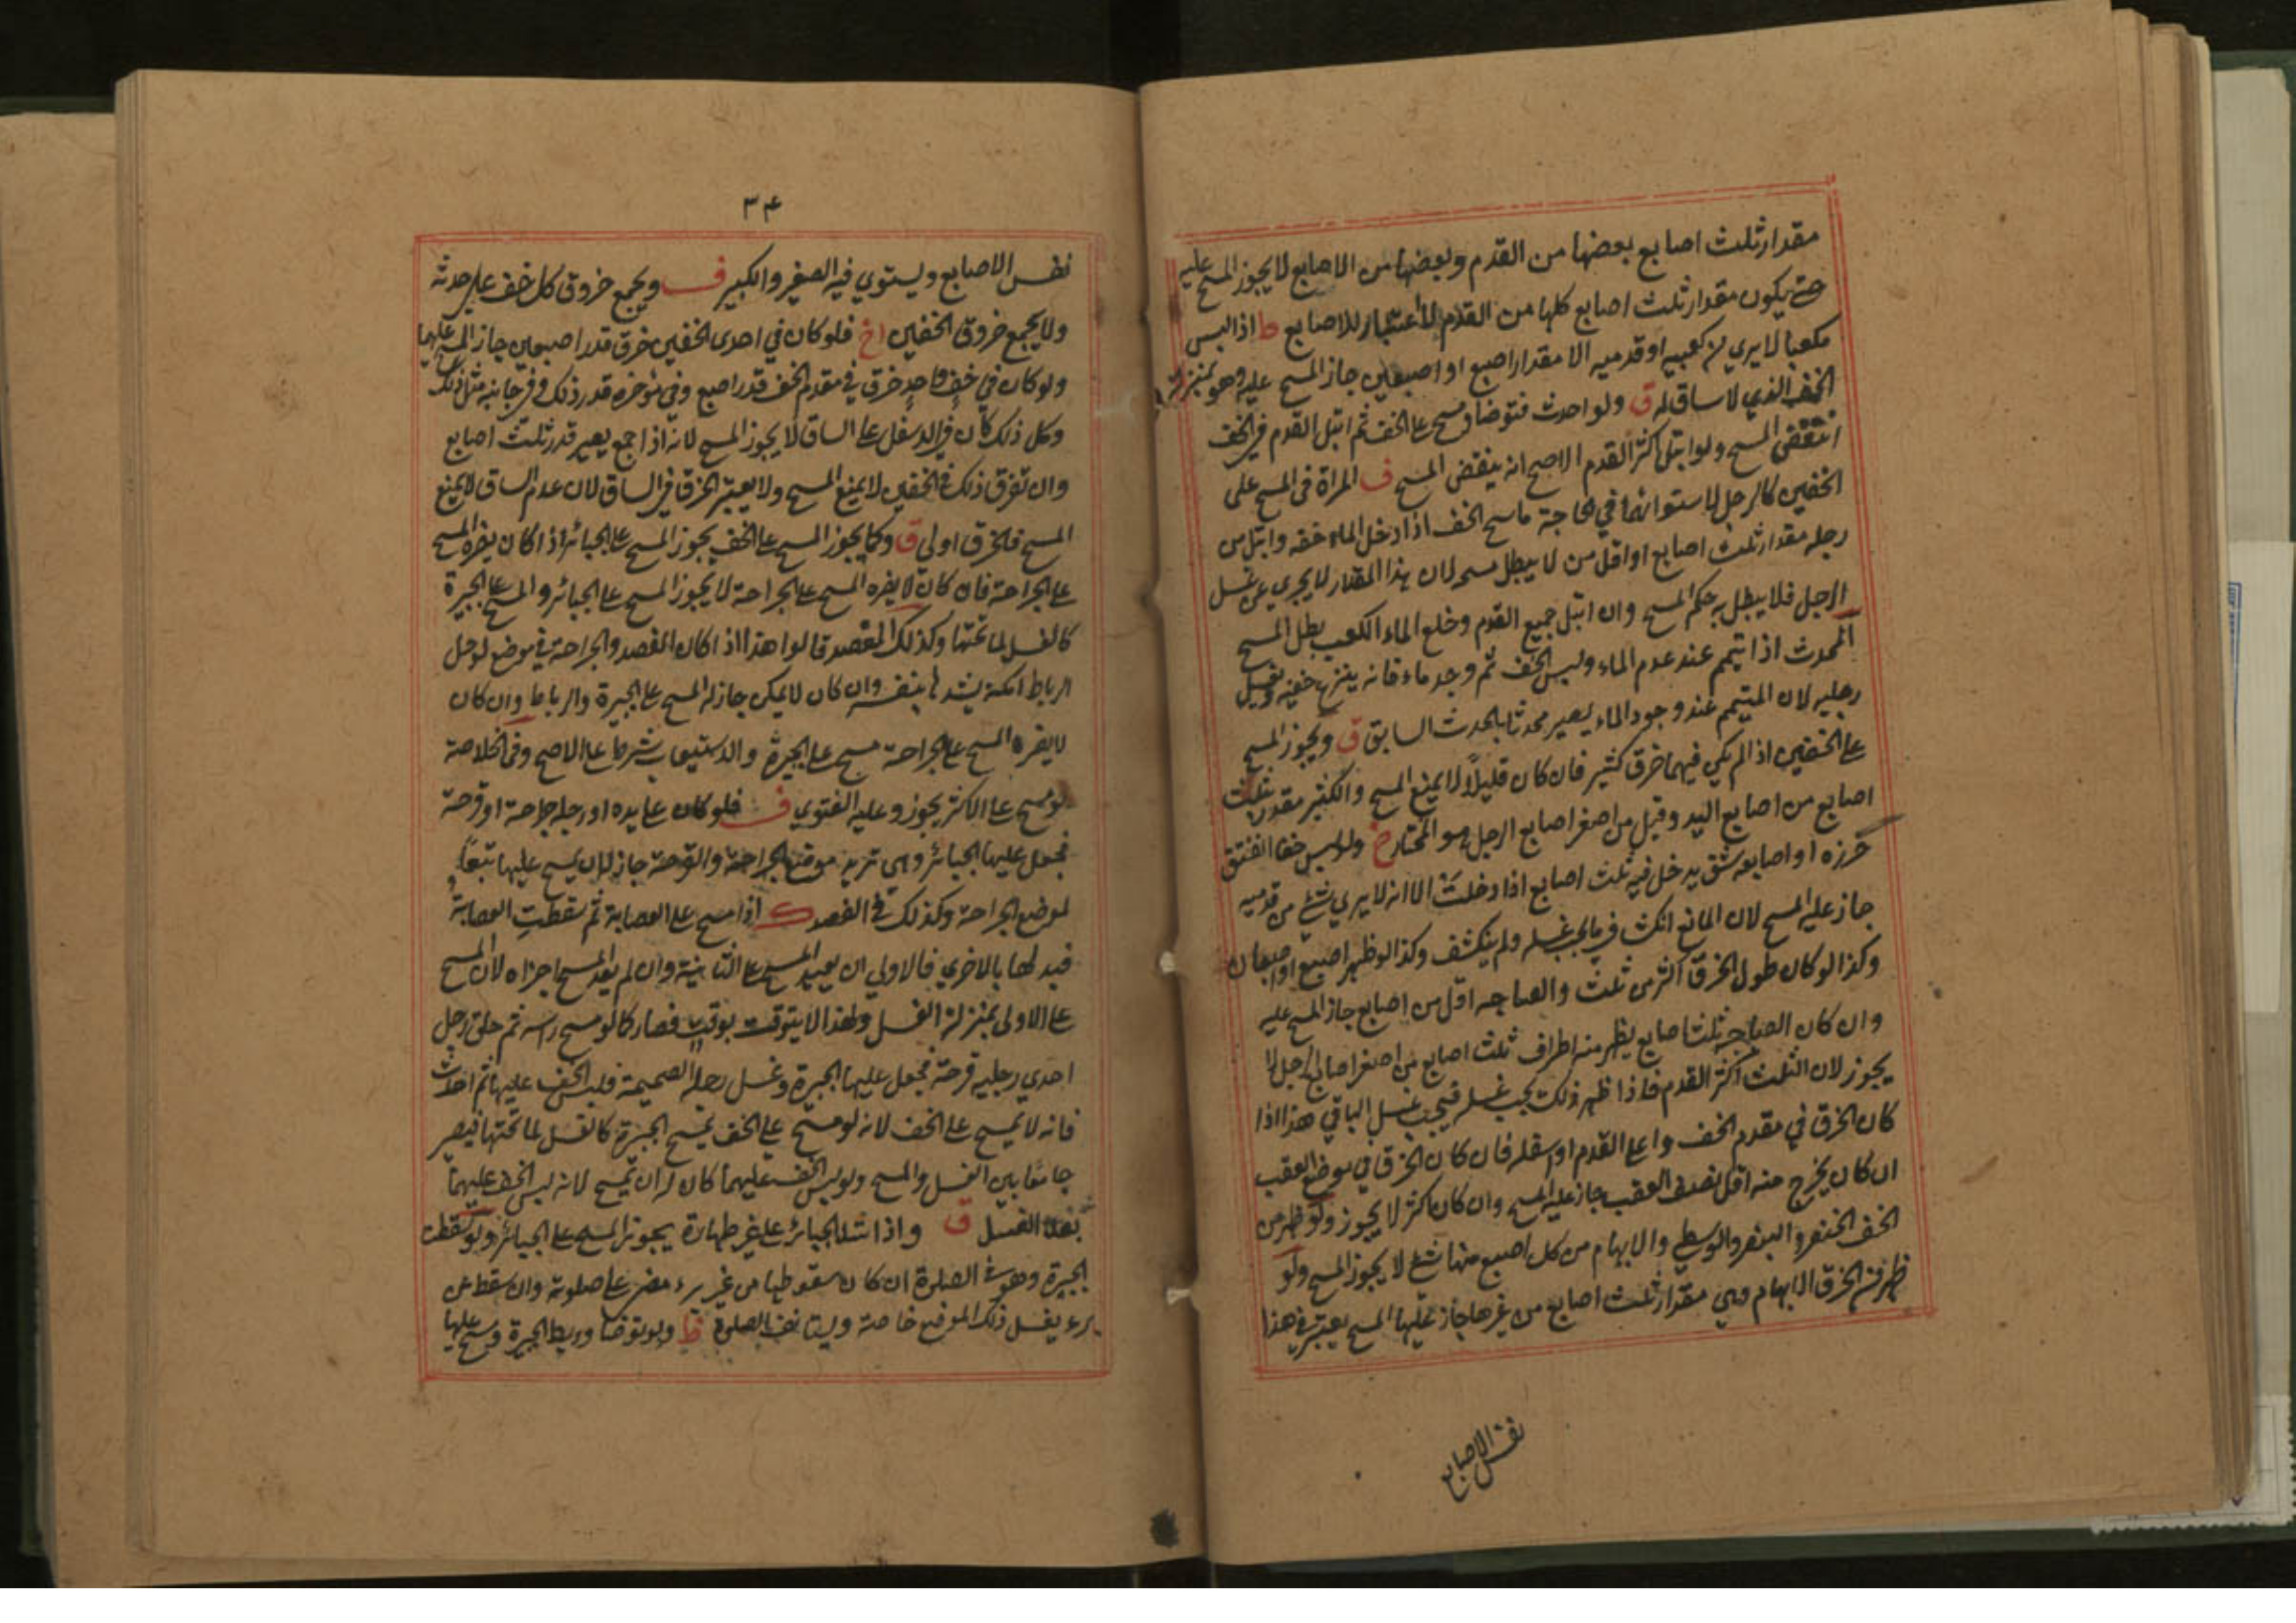 مقدار ثلث اصابع بعضها من القدم وبعضها من الاصابع لا يجوز المسح عليه
حتى يكون مقدار ثلث اصابع كلها من القدم لا اعتبار للاصابع ط اذا لبس
مكعبا لا يرى من كعبيه او قدميه الا مقدار اصبع او اصبعين جاز المسح عليه وهو بمنزلة
الخف الذي لا ساق له ق ولو احدث فتوضا ومسح على الخف ثم ابتل القدم في الخف
انتقض المسح ولو ابتل اكثر القدم الاصح انه ينقض المسح ف المراة في المسح على
الخفين كالرجل لاستوائهما في الحاجة ماسح الخف اذا دخل الماء خفه وابتل من
رجله مقدار ثلث اصابع او اقل من لا يبطل مسحه لان هذا المقدار لا يجزي عن غسل
الرجل فلا يبطل به حكم المسح وان ابتل جميع القدم وخلع الماء الكعب بطل المسح
المحدث اذا تيمم عند عدم الماء ولبس الخف ثم وجد ماء فانه ينزع خفيه ويغسل
رجليه لان المتيمم عند وجود الماء يصير محدثا بالحدث السابق ق ويجوز المسح
على الخفين اذا لم يكن فيهما خرق كثير فان كان قليلا لا يمنع المسح والكثير مقدر بثلث
اصابع من اصابع اليد وقيل من اصغر اصابع الرجل هو المختار خ ولو لبس خفا انفتق
خرزه او اصابعه شق يدخل فيه ثلث اصابع اذا دخلت الا انه لا يرى شئ من قدميه
جاز عليه المسح لان المانع انكشاف ما يجب غسله ولم ينكشف وكذا لو ظهر اصبع او اصبعان
وكذا لو كان طول الخرق اكثر من ثلث وانفتاحه اقل من اصابع جاز المسح عليه
وان كان انفتاحه ثلث اصابع يظهر منه اطراف ثلث اصابع من اصغر اصابع الرجل لا
يجوز لان الثلث اكثر القدم فاذا ظهر ذلك يجب غسله فيجب غسل الباقي هذا اذا
كان الخرق في مقدم الخف واعلى القدم او اسفله فان كان الخرق في موضع العقب
ان كان يخرج منه اقل نصف العقب جاز عليه المسح وان كان اكثر لا يجوز ولو ظهر من
الخف الخنصر والبنصر والوسطى والابهام من كل اصبع منها شئ لا يجوز المسح ولو
ظهر من الخرق الابهام وهي مقدار ثلث اصابع من غيرها جاز عليها المسح يعتبر في هذا
نفس الاصابع
٣٤
نفس الاصابع ويستوي فيه الصغير والكبير ف ويجمع خروق كل خف على حدته
ولا يجمع خروق الخفين خ فلو كان في احدى الخفين خرق قدر اصبعين جاز المسح عليهما
ولو كان في خف واحد خرق في مقدم الخف قدر اصبع وفي مؤخره قدر ذلك وفي جانبه مثل ذلك
وكل ذلك كان في الاسفل على الساق لا يجوز المسح لانه اذا جمع يصير قدر ثلث اصابع
وان تفرق ذلك في الخفين لا يمنع المسح ولا يعتبر الخرق في الساق لان عدم الساق لا يمنع
المسح فالخرق اولى ق وكما يجوز المسح على الخف يجوز المسح على الجبائر اذا كان يضره المسح
على الجراحة فان كان لا يضره المسح على الجراحة لا يجوز المسح على الجبائر والمسح على الجبيرة
كالغسل لما تحتها وكذلك المفصد قالوا هذا اذا كان المفصد والجراحة في موضع لو حل
الرباط امكنه يشدها بنفسه وان كان لا يمكن جاز له المسح على الجبيرة والرباط وان كان
لا يضره المسح على الجراحة مسح على الجبيرة والاستيعاب شرط على الاصح وفي الخلاصة
لو مسح على الاكثر يجوز وعليه الفتوى ف فلو كان على يده او رجله جراحة او قرحة
فجعل عليها الجبائر وهي تزيد موضع الجراحة والقرحة جاز له ان يمسح عليها تبعا
لموضع الجراحة وكذلك في الفصد ك اذا مسح على العصابة ثم سقطت العصابة
فبدلها بالاخرى فالاولى ان يعيد المسح على الثانية وان لم يعد المسح اجزاه لان المسح
على الاولى بمنزلة الغسل ولهذا لا يتوقت بوقت فصار كالو مسح راسه ثم حلق رجل
احدى رجليه قرحة فجعل عليها الجبيرة وغسل رجله الصحيحة فلبس الخف عليها ثم احدث
فانه لا يمسح على الخف لانه لو مسح على الخف يمسح الجبيرة كالغسل لما تحتها فيصير
جامعا بين الغسل والمسح ولو لبس الخف عليهما كان له ان يمسح لانه لبس الخف عليهما
بعد الغسل ق واذا شد الجبائر على غير طهارة يجوز المسح على الجبائر ولو سقطت
الجبيرة وهو في الصلوة ان كان سقوطها من غير برء مضى على صلوته وان سقط عن
برء يغسل ذلك الموضع خاصة ويستانف الصلوة ظ ولو توضا وربط الجبيرة ومسح عليها